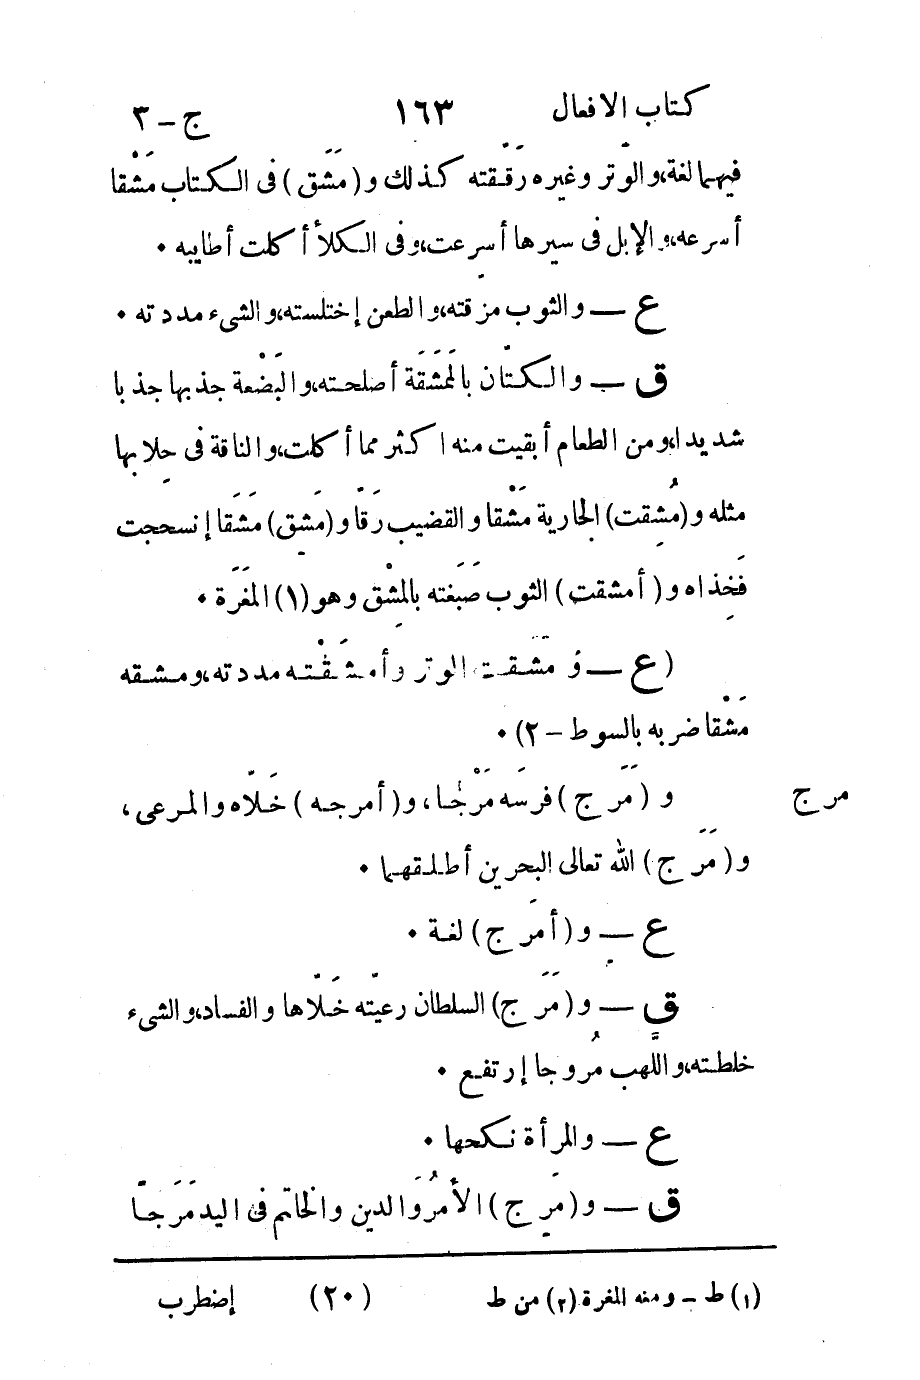 كتاب الافعال ١٦٣ ج – ٣
فيهما لغة، والوَتر وغيره رَقَّقته كذلك و(مَشَق) فى الكتاب مَشْقا
أسرعه، والإبل فى سيرها أسرعت، وفى الكلأ أكلت أطايبه •
ع — والثوب مزقته، والطعن إختلسته، والشىء مددته •
ق — والكتّان بالمَمْشَقَة أصلحته، والبَضْعة جذبها جذبا
شديدا، ومن الطعام أبقيت منه اكثر مما أكلت، والناقة فى حِلابها
مثله و(مُشِقت) الجارية مَشْقا والقضيب رَقّا و(مَشِق) مَشَقا إنسحجت
فَخِذاه و(أمشقت) الثوب صَبَغته بالمِشْق وهو (١) المَغَرَة •
(ع — و مَشَّقت الوتر وأمشَقْته مددته، ومشقه
مَشْقا ضربه بالسوط – ٢) •
مرج و (مَرَج) فرسَه مَرْجا، و(أمرجه) خَلّاه والمرعى،
و(مَرَج) الله تعالى البحرين أطلقهما •
ع — و(أمَرج) لغة •
ق — و(مَرَج) السلطان رعيّته خَلّاها والفساد، والشىء
خلطته، واللَّهب مُروجا إرتفع •
ع — والمرأة نكحها •
ق — و(مَرِج) الأمرُ والدين والخاتم فى اليد مَرَجا
(١) ط – ومنه المغرة (٢) من ط (٢٠) إضطرب